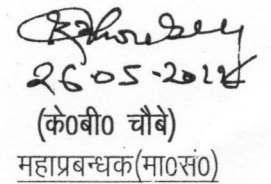 26-05-2014
(के०बी० चौबे)
महाप्रबन्धक(मा०सं०)